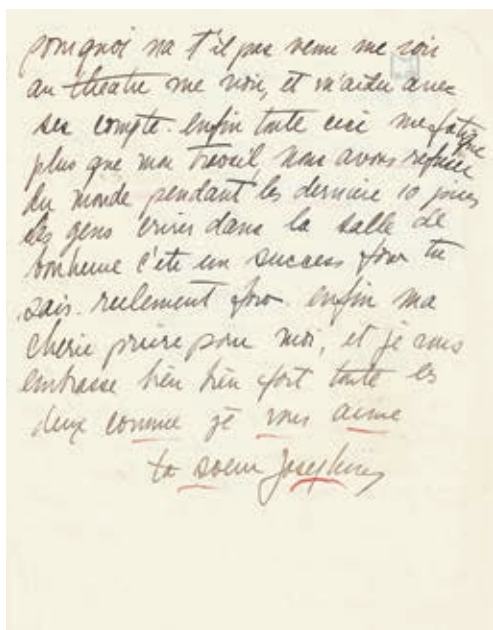 pourquoi na t'il pas venu me voir
au theatre me voir, et m'aider avec
ses compte. enfin toute ceci me fatigue
plus que mon travail, nous avons refuser
du monde pendant les derniere 10 jours
les gens crirer dans la salle de
bonheure c'ete un success fou tu
sais. reelement fou. enfin ma
cherie priere pour moi, et je vous
embrasse bien bien fort toute les
deux comme je vous aime
ta soeur Josephine